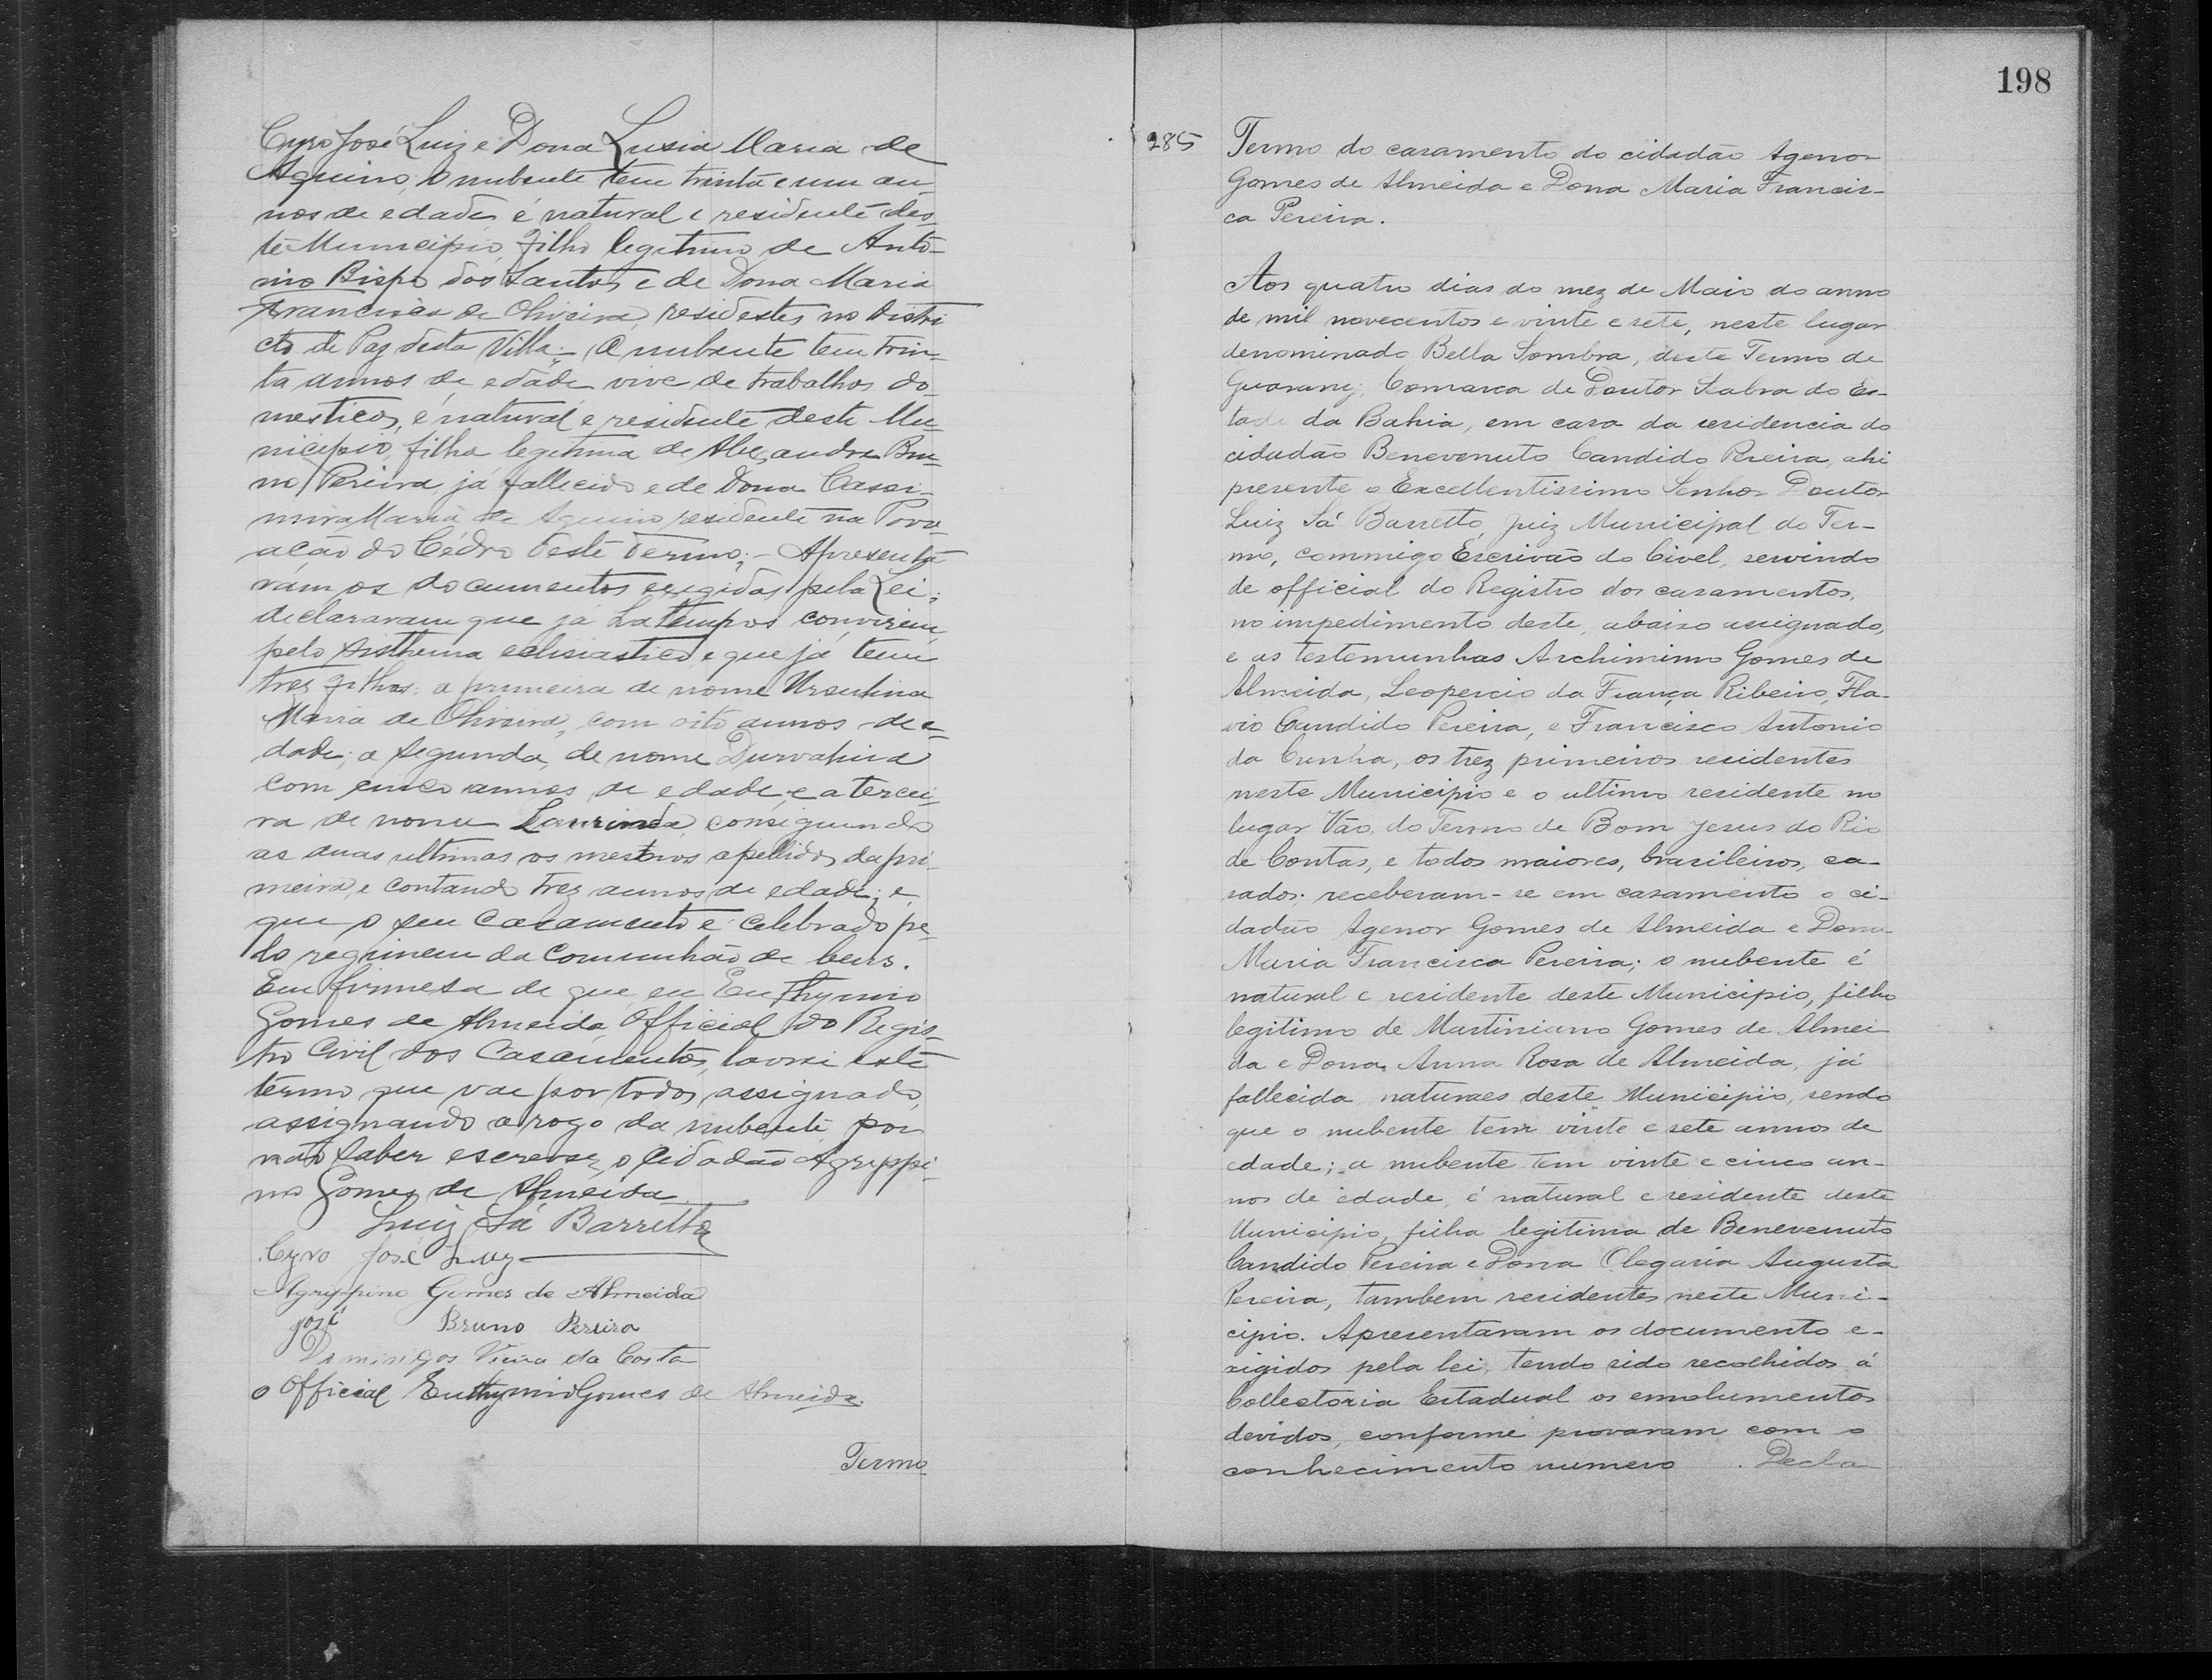 Cyro José Luiz e Dona Lusia Maria de
Aquino; o nubente tem trinta e um an-
nos de edade, é natural e residente des-
te Municipio, filho legitimo de Anto-
nio Bispo dos Santos e de Dona Maria
Francisca de Oliveira, residestes no Distri
cto de Paz desta Villa; A nubente tem trin-
ta annos de edade vive de trabalhos do-
mesticos, é natural e residente deste Mu-
nicipio, filha legitima de Alexandre Bru-
no Pereira já fallecido e de Dona Casei-
mira Maria de Aquino residente na Povo-
ação do Cédro deste Termo; - Apresenta
ram os documentos exigidos pela Lei;
declararam que já ha tempos convivem
pelo systhema eclisiastico e que já tem
trez filhas: a primeira de nome Ursulina
Maria de Oliveira, com oito annos de e-
dade; a segunda, de nome Durvalina
com cinco annos de edade, e a tercei-
ra de nome Laurinda, conseguindo
as duas ultimas os mesmos apellidos da pri-
meira, e contando trez annos de edade; e
que o seu casamento é celebrado pe-
lo regimem da comunhão de bens.
Em firmesa de que eu Euthymio
Gomes de Almeida, Official do Regis-
tro Civil dos Casamentos, lavrei este
termo que vae por todos assignado,
assignando a rogo da nubente por
não saber escrever, o cidadão Agrippi-
no Gomes de Almeida.
Luiz Sá Barretto
Cyro José Luiz
Agrippino Gomes de Almeida
José Bruno Pereira
Domingos Vieira da Costa
o Official Euthymio Gomes de Almeida.
Termo
198
285
Termo do casamento do cidadão Agenor
Gomes de Almeida e Dona Maria Francis-
ca Pereira.
Aos quatro dias do mez de Maio do anno
de mil novecentos e vinte e sete, neste lugar
denominado Bella Sombra, deste Termo de
Guarany, Comarca de Doutor Seabra do Es-
tado da Bahia, em casa da residencia do
cidadão Benevenuto Candido Pereira, ahi
presente o Excellentissimo Senhor Doutor
Luiz Sá Barretto, juiz Municipal do Ter-
mo, commigo Escrivão do Civel, servindo
de official do Registro dos casamentos,
no impedimento deste, abaixo assignado,
e as testemunhas Archimimo Gomes de
Almeida, Leopercio da França Ribeiro, Fla-
vio Candido Pereira, e Francisco Antonio
da Cunha, os trez primeiros residentes
neste Municipio e o ultimo residente no
lugar Vão, do Termo de Bom Jesus do Rio
de Contas, e todos maiores, brasileiros, ca-
sados; receberam-se em casamento o ci-
dadão Agenor Gomes de Almeida e Dona
Maria Francisca Pereira; o nubente é
natural e residente deste Municipio, filho
legitimo de Martiniano Gomes de Almei-
da e Dona Anna Rosa de Almeida, já
fallecida, naturaes deste Municipio, sendo
que o nubente tem vinte e sete annos de
edade; a nubente tem vinte e cinco an-
nos de edade, é natural e residente deste
Municipio, filha legitima de Benevenuto
Candido Pereira e Dona Olegaria Augusta
Pereira, tambem residentes neste Muni-
cipio. Apresentaram os documento e-
xigidos pela lei, tendo sido recolhidos á
Collectoria Estadual os emolumentos
devidos, conforme provaram com o
conhecimento numero . Decla